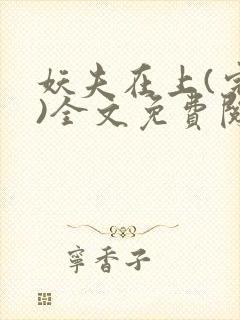 妖夫在上(完
)全文免費閱
寧香子